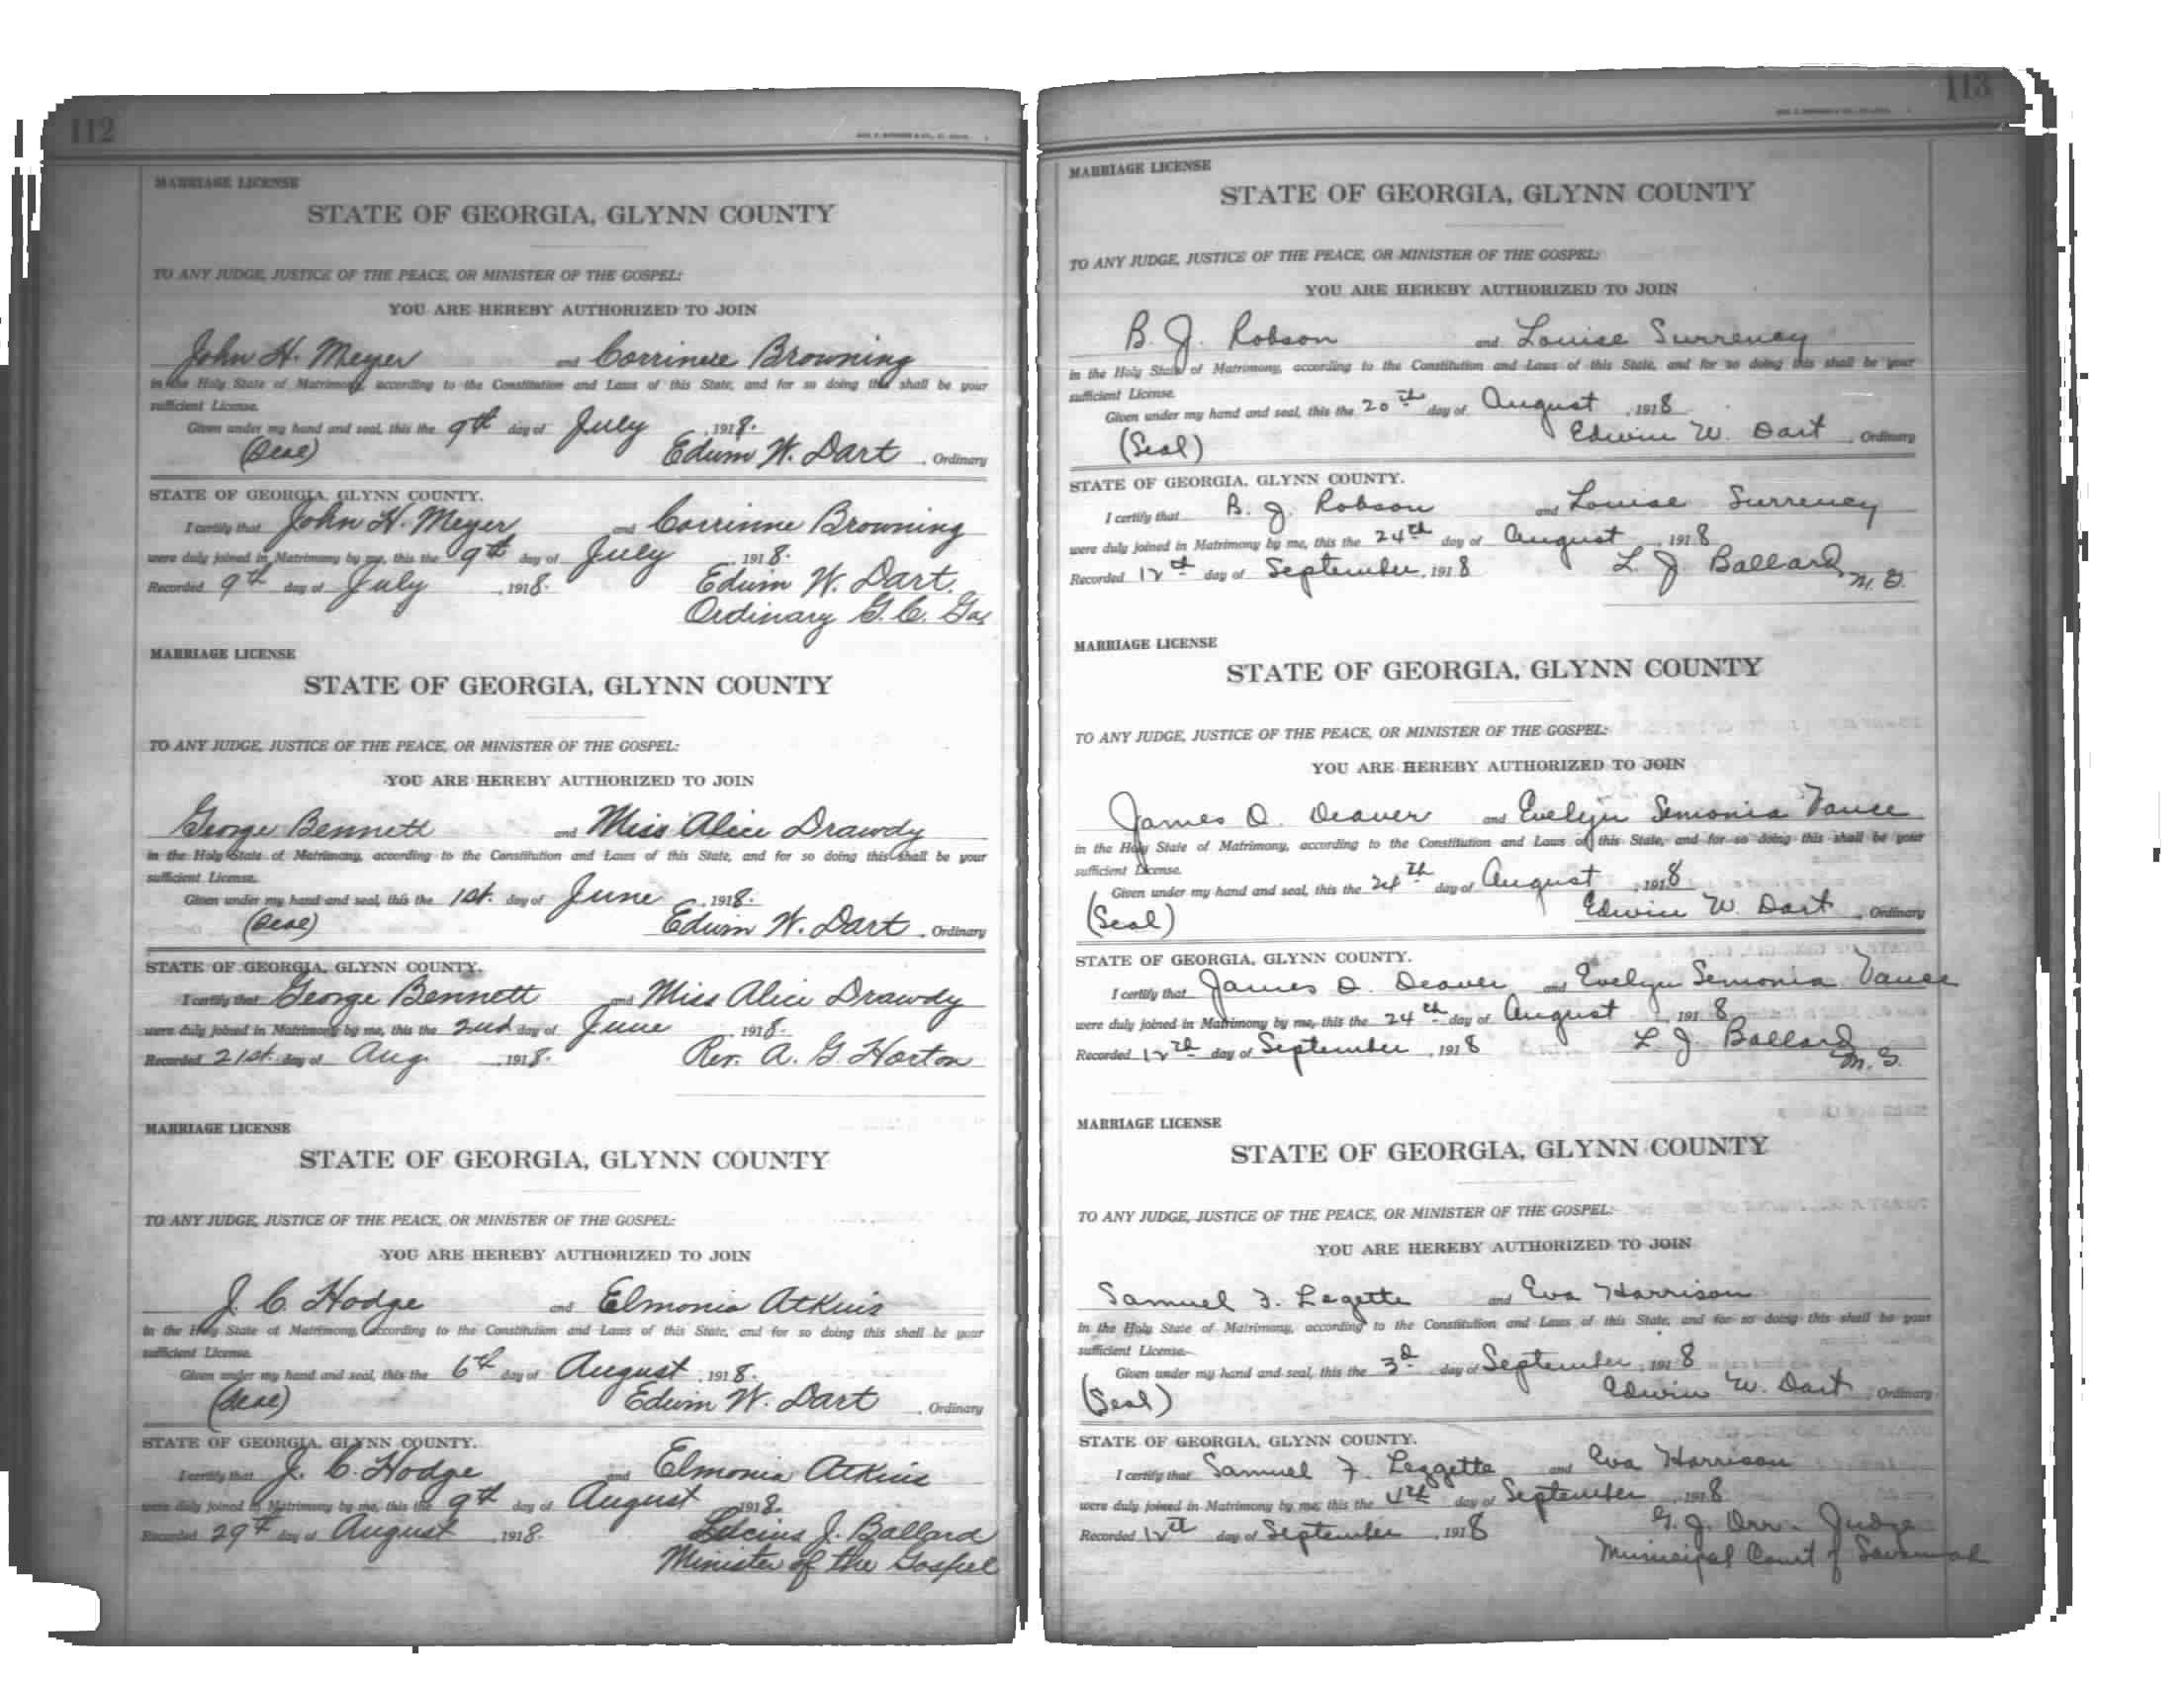 112
MARRIAGE LICENSE
STATE OF GEORGIA, GLYNN COUNTY
TO ANY JUDGE, JUSTICE OF THE PEACE, OR MINISTER OF THE GOSPEL:
YOU ARE HEREBY AUTHORIZED TO JOIN
John H. Meyer and Corrinere Browning
in the Holy State of Matrimony, according to the Constitution and Laws of this State, and for so doing this shall be your
sufficient License.
Given under my hand and seal, this the 9th day of July, 1918.
(Seal) Edwin W. Dart, Ordinary
STATE OF GEORGIA, GLYNN COUNTY.
I certify that John H. Meyer and Corrinne Browning
were duly joined in Matrimony by me, this the 9th day of July, 1918.
Recorded 9th day of July, 1918. Edwin W. Dart.
Ordinary G. C. Ga.
MARRIAGE LICENSE
STATE OF GEORGIA, GLYNN COUNTY
TO ANY JUDGE, JUSTICE OF THE PEACE, OR MINISTER OF THE GOSPEL:
YOU ARE HEREBY AUTHORIZED TO JOIN
George Bennett and Miss Alice Drawdy
in the Holy State of Matrimony, according to the Constitution and Laws of this State, and for so doing this shall be your
sufficient License.
Given under my hand and seal, this the 1st. day of June, 1918.
(Seal) Edwin W. Dart, Ordinary
STATE OF GEORGIA, GLYNN COUNTY.
I certify that George Bennett and Miss Alice Drawdy
were duly joined in Matrimony by me, this the 2nd day of June, 1918.
Recorded 21st. day of Aug., 1918. Rev. A. G. Horton
MARRIAGE LICENSE
STATE OF GEORGIA, GLYNN COUNTY
TO ANY JUDGE, JUSTICE OF THE PEACE, OR MINISTER OF THE GOSPEL:
YOU ARE HEREBY AUTHORIZED TO JOIN
J. C. Hodge and Elmonia Atkins
in the Holy State of Matrimony, according to the Constitution and Laws of this State, and for so doing this shall be your
sufficient License.
Given under my hand and seal, this the 6th day of August, 1918.
(Seal) Edwin W. Dart, Ordinary
STATE OF GEORGIA, GLYNN COUNTY.
I certify that J. C. Hodge and Elmonia Atkins
were duly joined in Matrimony by me, this the 9th day of August 1918.
Recorded 29th day of August, 1918. Lucius J. Ballard
Minister of the Gospel
113
MARRIAGE LICENSE
STATE OF GEORGIA, GLYNN COUNTY
TO ANY JUDGE, JUSTICE OF THE PEACE, OR MINISTER OF THE GOSPEL:
YOU ARE HEREBY AUTHORIZED TO JOIN
B. J. Robson and Louise Surrency
in the Holy State of Matrimony, according to the Constitution and Laws of this State, and for so doing this shall be your
sufficient License.
Given under my hand and seal, this the 20th day of August, 1918
(Seal) Edwin W. Dart, Ordinary
STATE OF GEORGIA, GLYNN COUNTY.
I certify that B. J. Robson and Louise Surrency
were duly joined in Matrimony by me, this the 24th day of August, 1918
Recorded 12th day of September, 1918 L J Ballard
M. G.
MARRIAGE LICENSE
STATE OF GEORGIA, GLYNN COUNTY
TO ANY JUDGE, JUSTICE OF THE PEACE, OR MINISTER OF THE GOSPEL:
YOU ARE HEREBY AUTHORIZED TO JOIN
James D. Deaver and Evelyn Semonia Vance
in the Holy State of Matrimony, according to the Constitution and Laws of this State, and for so doing this shall be your
sufficient License.
Given under my hand and seal, this the 24th day of August, 1918
(Seal) Edwin W. Dart, Ordinary
STATE OF GEORGIA, GLYNN COUNTY.
I certify that James D. Deaver and Evelyn Semonia Vance
were duly joined in Matrimony by me, this the 24th day of August, 1918
Recorded 12th day of September, 1918 L J Ballard
M. G.
MARRIAGE LICENSE
STATE OF GEORGIA, GLYNN COUNTY
TO ANY JUDGE, JUSTICE OF THE PEACE, OR MINISTER OF THE GOSPEL:
YOU ARE HEREBY AUTHORIZED TO JOIN
Samuel F. Legette and Eva Harrison
in the Holy State of Matrimony, according to the Constitution and Laws of this State, and for so doing this shall be your
sufficient License.
Given under my hand and seal, this the 3d day of September, 1918
(Seal) Edwin W. Dart, Ordinary
STATE OF GEORGIA, GLYNN COUNTY.
I certify that Samuel F. Leggette and Eva Harrison
were duly joined in Matrimony by me, this the 4th day of September, 1918
Recorded 12th day of September, 1918 G. J. Orr - Judge
Municipal Court of Savannah